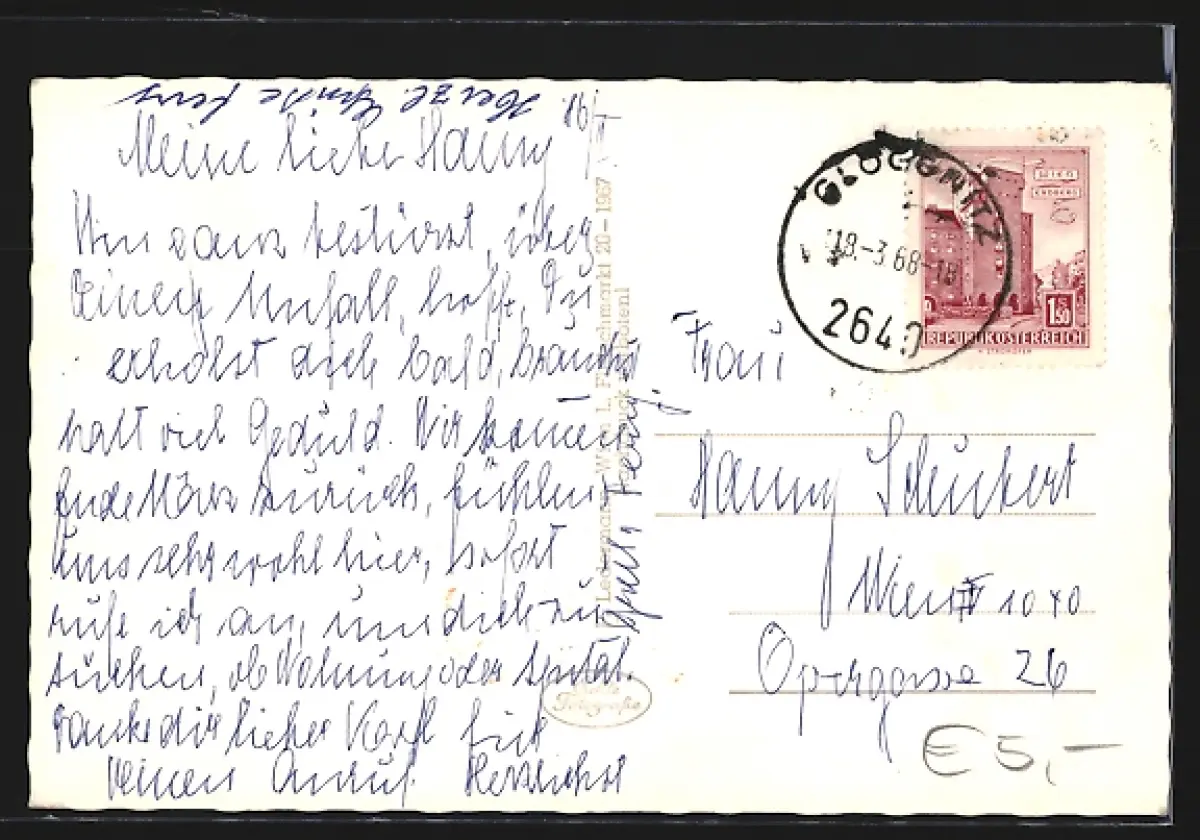 Meine liebe Hanny
Bin ganz bestürzt, über
Deinen Unfall, hoffe, Du
erholst dich bald, brauchst
halt viel Geduld. Wir kommen
Ende März zurück, fühlen
uns sehr wohl hier, sofort
rufe ich an, um dich zu
suchen, ob Wohnung oder Spital.
Danke dir lieber Karl für
Deinen Anruf. Herzlichst
Herzl. Grüße
GLOGGNITZ
18.-3.68-18
2640
WIEN
ERDBERG
S
1.50
REPUBLIK ÖSTERREICH
Frau
Hanny Schubert
Wien IV 1040
Operngasse 26
€5,-
Echte
Fotografie